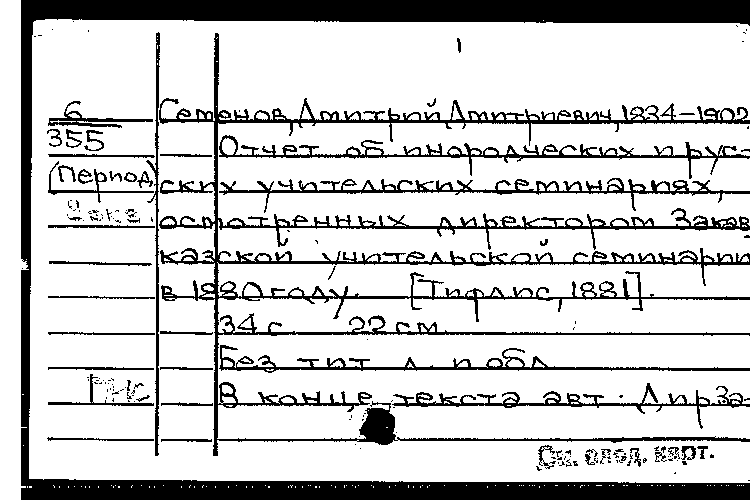 6
355
(Период)
2 экз.
Семенов, Дмитрий Дмитриевич, 1834-1902
Отчет об инородческих и рус-
ских учительских семинариях,
осмотренных директором Закав
казской учительской семинарии
в 1880 году. [Тифлис, 1881].
34 с 22 см
Без тит л. и обл
В конце текста авт. Дир За-
См. след. карт.